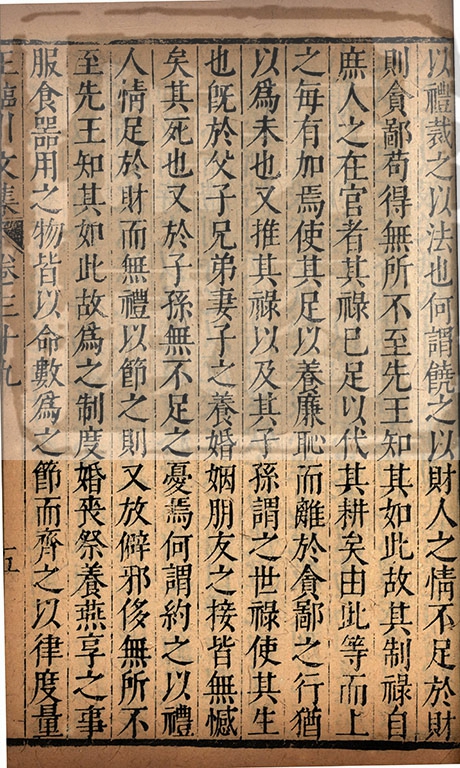 以禮裁之以法也何謂饒之以財人之情不足於財
則貪鄙苟得無所不至先王知其如此故其制祿自
庶人之在官者其祿已足以代其耕矣由此等而上
之每有加焉使其足以養廉恥而離於貪鄙之行猶
以爲未也又推其祿以及其子孫謂之世祿使其生
也旣於父子兄弟妻子之養婚姻朋友之接皆無憾
矣其死也又於子孫無不足之憂焉何謂約之以禮
人情足於財而無禮以節之則又放僻邪侈無所不
至先王知其如此故爲之制度婚喪祭養燕享之事
服食器用之物皆以命數爲之節而齊之以律度量
王臨川文集 卷三十九 五